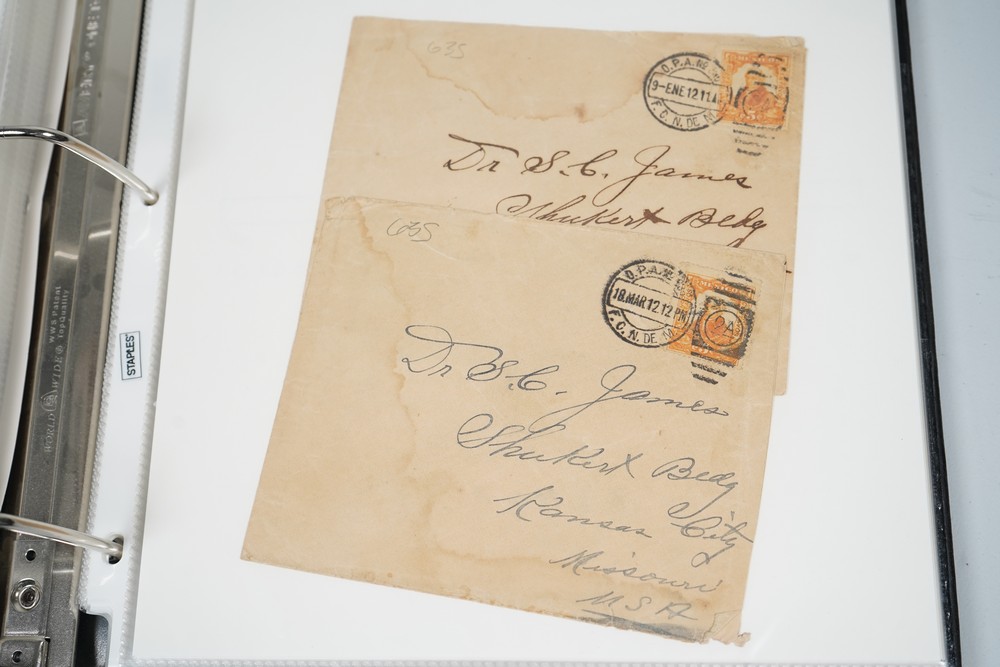 63S
O.P.A. No
9-ENE 12 11 A
F.C.N. DE M
MEXICO
5
Dr S. C. James
Shukert Bldg
63S
O.P.A. No
18.MAR 12.12 PM
F.C.N. DE M
Dr S. C. James
Shukert Bldg
Kansas City
Missouri
U S A
STAPLES
WORLD WIDE
WWS Patent
TopQuality